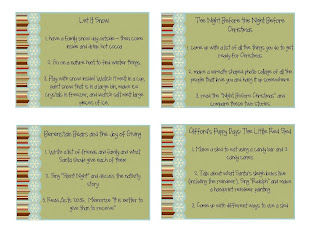 Let It Snow
1. Have a family snow day outside - then come
inside and drink hot cocoa
2. Go on a nature hunt to find winter things.
3. Play with snow inside! Watch it melt in a cup,
paint snow that is in a large bin, make ice
crystals in freezer, and watch salt melt large
pieces of ice.
The Night Before the Night Before
Christmas
1. Come up with a list of things you do to get
ready for Christmas.
2. Make a wreath shaped photo collage of all the
people that you have hung it up somewhere
3. read the "Night Before Christmas" and
compare these two stories.
Berenstain Bears and the Joy of Giving
1. Write a list of friends and family and what
Santa should give each of them
2. Sing "Silent Night" and discuss the nativity
story
3. Read Acts 20:35, Memorize "It is better to
give than to receive"
Clifford's Puppy Days: The Little Red Sled
1. Make a sled to eat using a candy bar and 2
candy canes
2. Talk about what Santa's sleigh looks like
(including the reindeer), Sing "Rudolph" and make
a handprint reindeer painting
3. Come up with different ways to use a sled